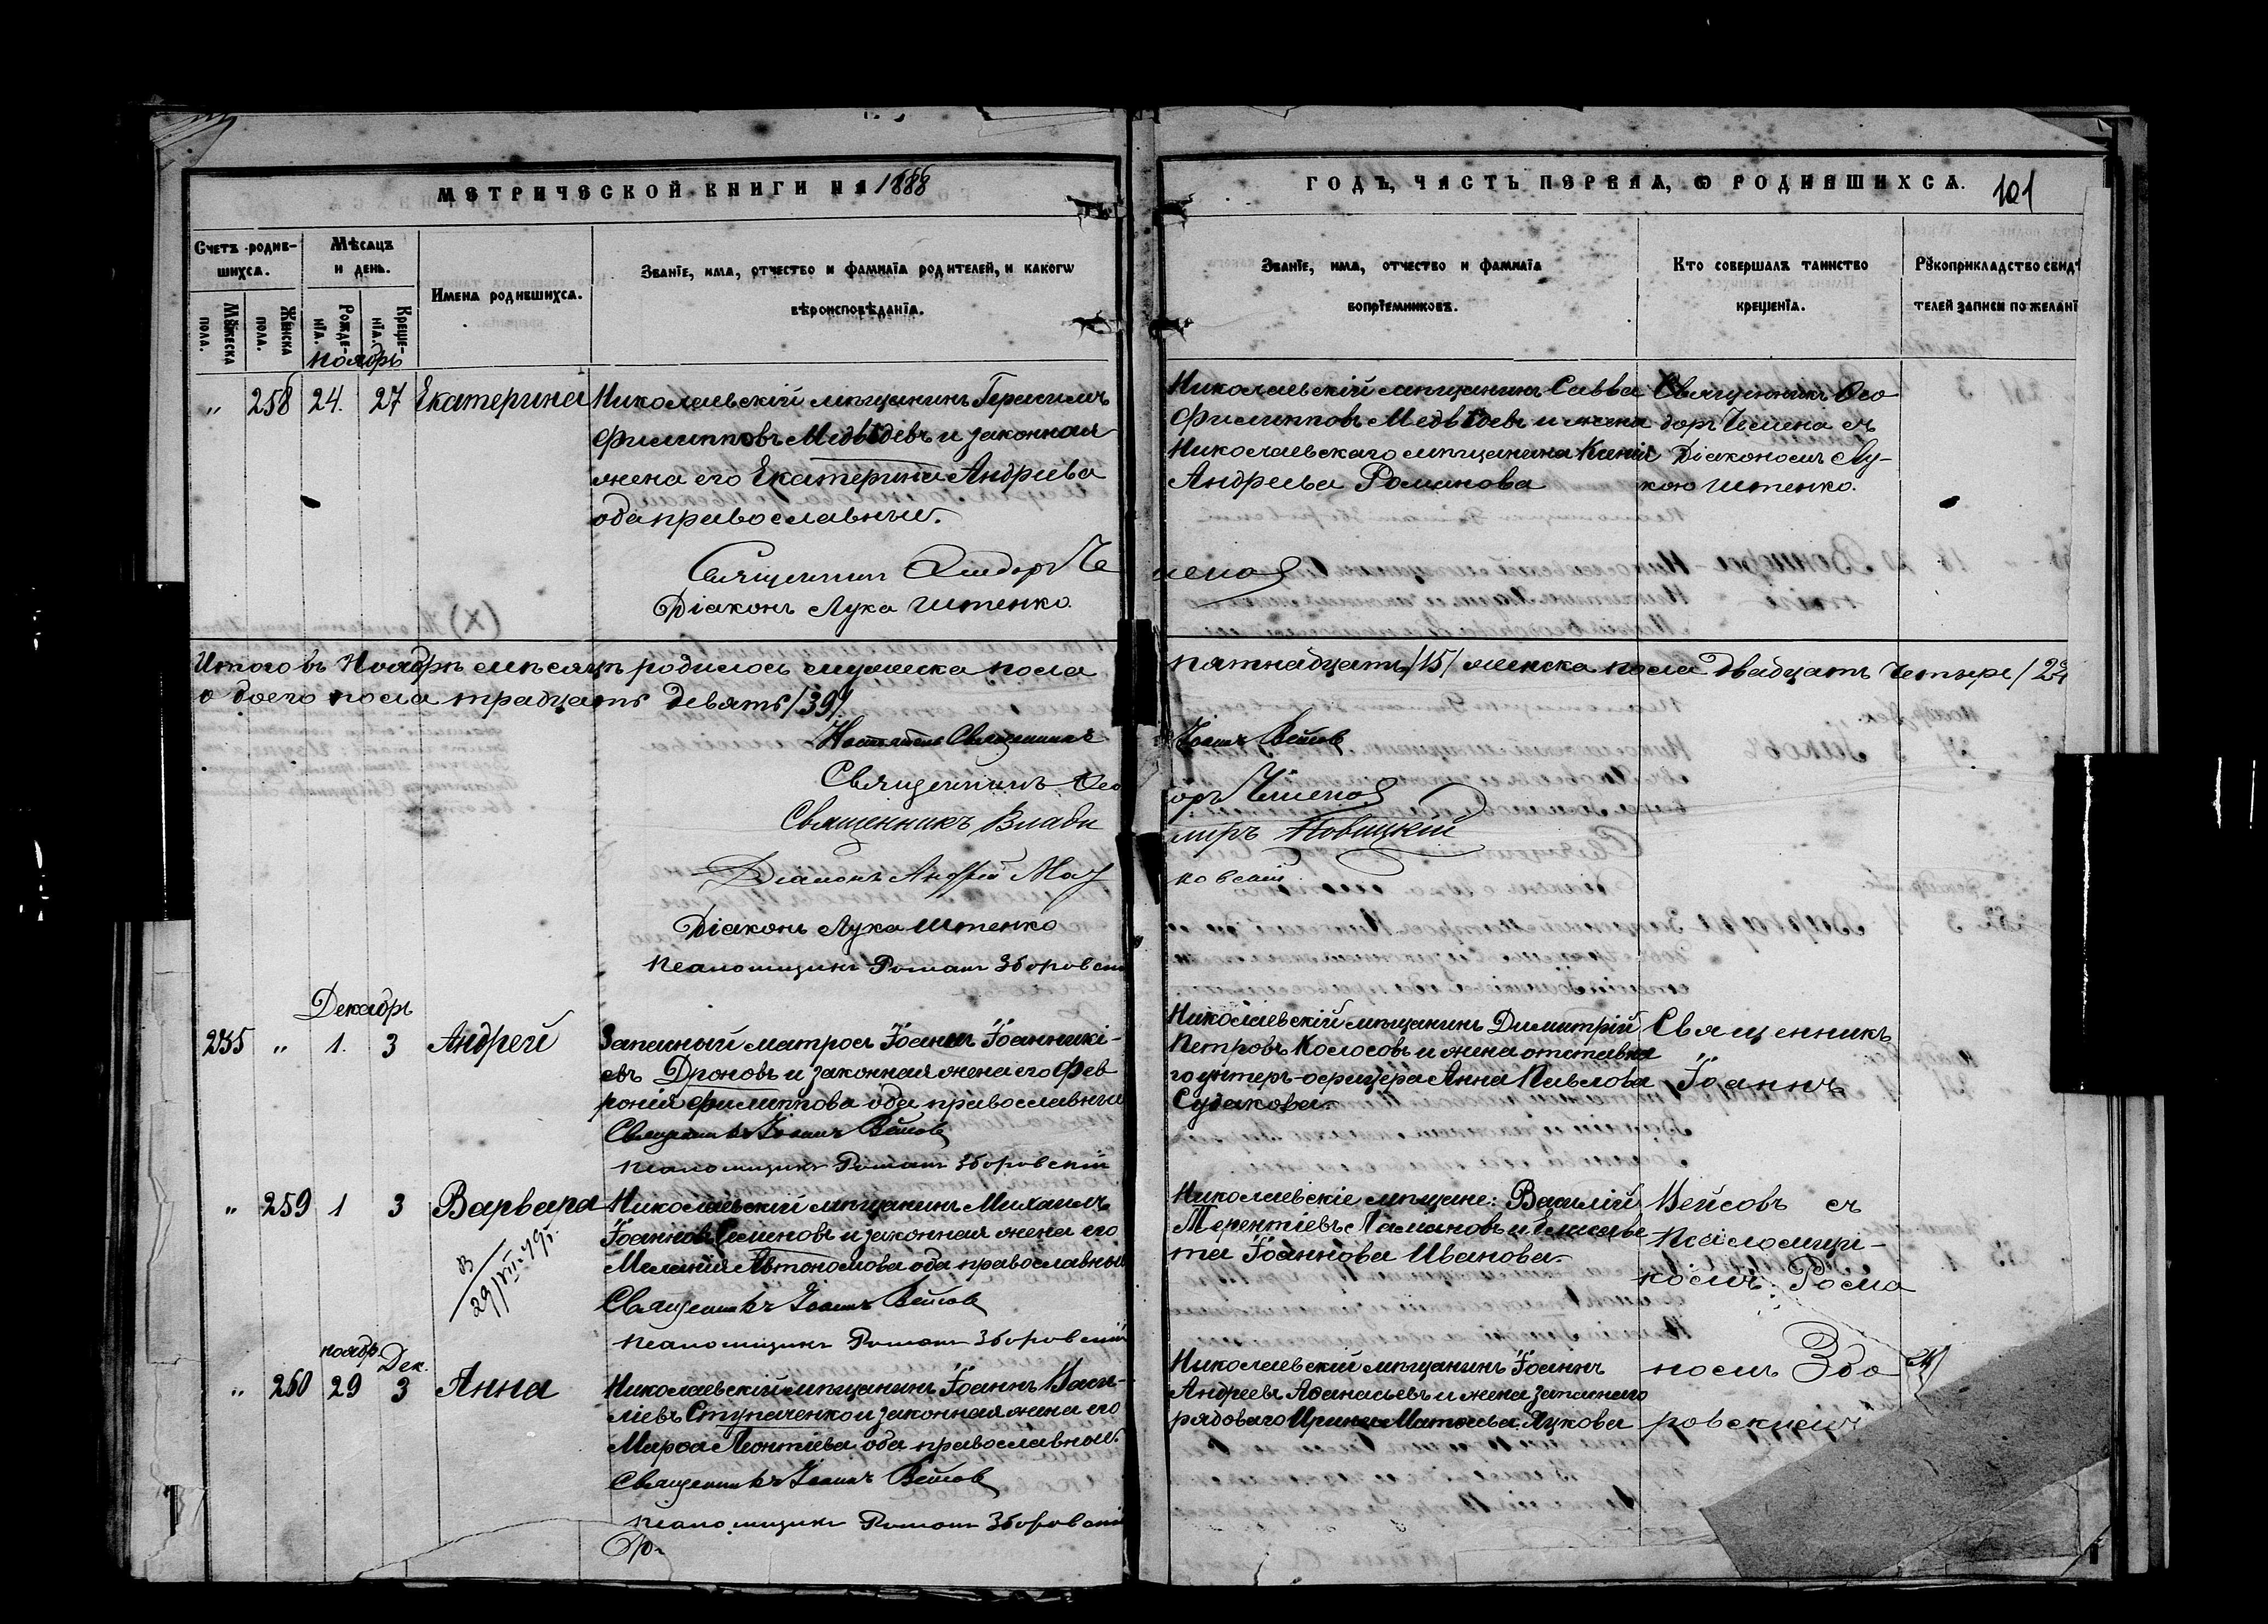 МЕТРИЧЕСКОЙ КНИГИ НА 1888
ГОДЪ, ЧАСТЬ ПЕРВАЯ, О РОДИВШИХСЯ.
101
Счетъ родив-
шихся.
Мѣсяцъ
и день.
Имена родившихся.
Званіе, имя, отчество и фамилія родителей, и какогѡ
вѣроисповѣданія.
Мꙋжеска
пола.
Женска
пола.
Рожде-
нія.
Креще-
нія.
Званіе, имя, отчество и фамилія
воспріемниковъ.
Кто совершалъ таинство
крещенія.
Рꙋкоприкладство свидѣ
телей записи по желанї
ноябрь
„ 258 24. 27 Екатерина
Николаевскій мѣщанинъ Герасимъ
Филипповъ Медвѣдевъ и законная
жена его Екатерина Андреева
оба православные.
Священник Ѳеодоръ Че
Діаконъ Лука Штенко.
Николаевскій мѣщанинъ Савва
Филипповъ Медвѣдевъ и жена
Николаевскаго мѣщанина
Андреева Романова
Священникъ Ѳео
доръ съ
Діакономъ Лу-
кою Штенко.
Итого въ Ноябрѣ мѣсяцѣ родилось мужеска пола
пятнадцать /15/ женска пола двадцать четыре /24
обоего пола тридцать девять /39/
Настоятель Священникъ
Іоаннъ Вейсов
Священникъ Ѳео
доръ
Священникъ Влади
миръ Новицкій
Діаконъ Андрей
ковскій
Діаконъ Лука Штенко
Псаломщикъ Романъ Зборовскій
Декабрь
235 „ 1. 3 Андрей
Запасный матросъ Іоаннъ Іоанникі-
евъ Дроновъ и законная жена его Фев
ронія Филиппова оба православные
Священникъ Іоаннъ Вейсов
Псаломщикъ Романъ Зборовскій
Николаевскій мѣщанинъ Димитрій
Петровъ Колосовъ и жена отставна
го унтеръ-офицера Анна Павлова
Судакова.
Священникъ
Іоаннъ
„ 259 1 3 Варвара
29/VII-49г.
Николаевскій мѣщанинъ Михаилъ
Іоанновъ Семеновъ и законная жена его
Меланія Автономова оба православные
Священникъ Іоаннъ Вейсов
Псаломщикъ Романъ Зборовскій
Николаевскіе мѣщане: Василій
Терентіевъ и Елисаве
та Іоаннова Иванова.
Вейсовъ съ
Псаломщи-
комъ Рома
ноябр. Дек.
„ 260 29 3 Анна
Николаевскій мѣщанинъ Іоаннъ Васи-
ліевъ Ступаченко и законная жена его
Марѳа Леонтіева оба православные.
Священникъ Іоаннъ Вейсов
Псаломщикъ Романъ Зборовскій
Николаевскій мѣщанинъ Іоаннъ
Андреевъ Аѳанасьевъ и жена запаснаго
рядоваго Ирина Матѳеева Яцкова
номъ Збо
ровскимъ